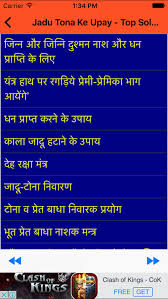 1:34 PM
Jadu Tona Ke Upay - Top Sol...
जिन्न और जिन्नि दुश्मन नाश और धन
प्राप्ति के लिए
यंत्र हाथ पर रगडिये प्रेमी-प्रेमिका भाग
आयेंगे"
धन प्राप्त करने के उपाय
काला जादू हटाने के उपाय
देह रक्षा मंत्र
जादू-टोना निवारण
टोना व प्रेत बाधा निवारक प्रयोग
भूत प्रेत बाधा नाशक मन्त्र
CLASH OF KINGS
Clash of Kings - CoK
FREE
GET
iAd